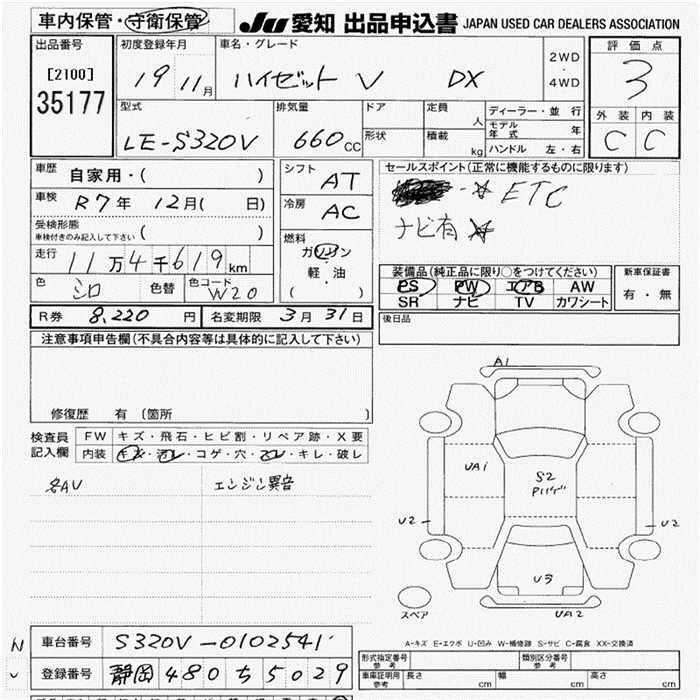 車内保管・守衛保管 JU 愛知 出品申込書 JAPAN USED CAR DEALERS ASSOCIATION
出品番号 初度登録年月 車名・グレード 2WD・4WD 評価点
[2100] 35177 19 11月 ハイゼット V DX 3
型式 排気量 ドア 定員 人 ディーラー・並行 外装 内装
LE-S320V 660cc 形状 積載 kg モデル年式 年 C C
ハンドル 左・右
車歴 自家用・( ) シフト AT セールスポイント(正常に機能するものに限ります)
車検 R7年 12月( 日) 冷房 AC ☆ETC
受検形態 車検付きのみ記入して下さい ( ) ナビ有☆
走行 11万4千619km 燃料 ガソリン・軽・油 ( )
装備品(純正品に限り○をつけてください) 新車保証書
色 シロ 色替 色コード W20 PS PW エアB AW 有・無
SR ナビ TV カワシート
R券 8,220円 名変期限 3月31日 後日品
注意事項申告欄(不具合内容等は具体的に記入して下さい)
修復歴 有 〔箇所 〕
検査員記入欄 FW キズ・飛石・ヒビ割・リペア跡・X要
内装 キズ・汚レ・コゲ・穴・スレ・キレ・破レ
エンジン異音
A1
UA1
S2
U2
U2
U3
スペア
UA2
A-キズ E-エクボ U-凹み W-補修跡 S-サビ C-腐食 XX-交換済
車台番号 S320V-0102541
登録番号 静岡 480 ち 5029
形式指定番号 参考 類別区分番号 参考
車庫証明用 参考 長さ cm 幅 cm 高さ cm